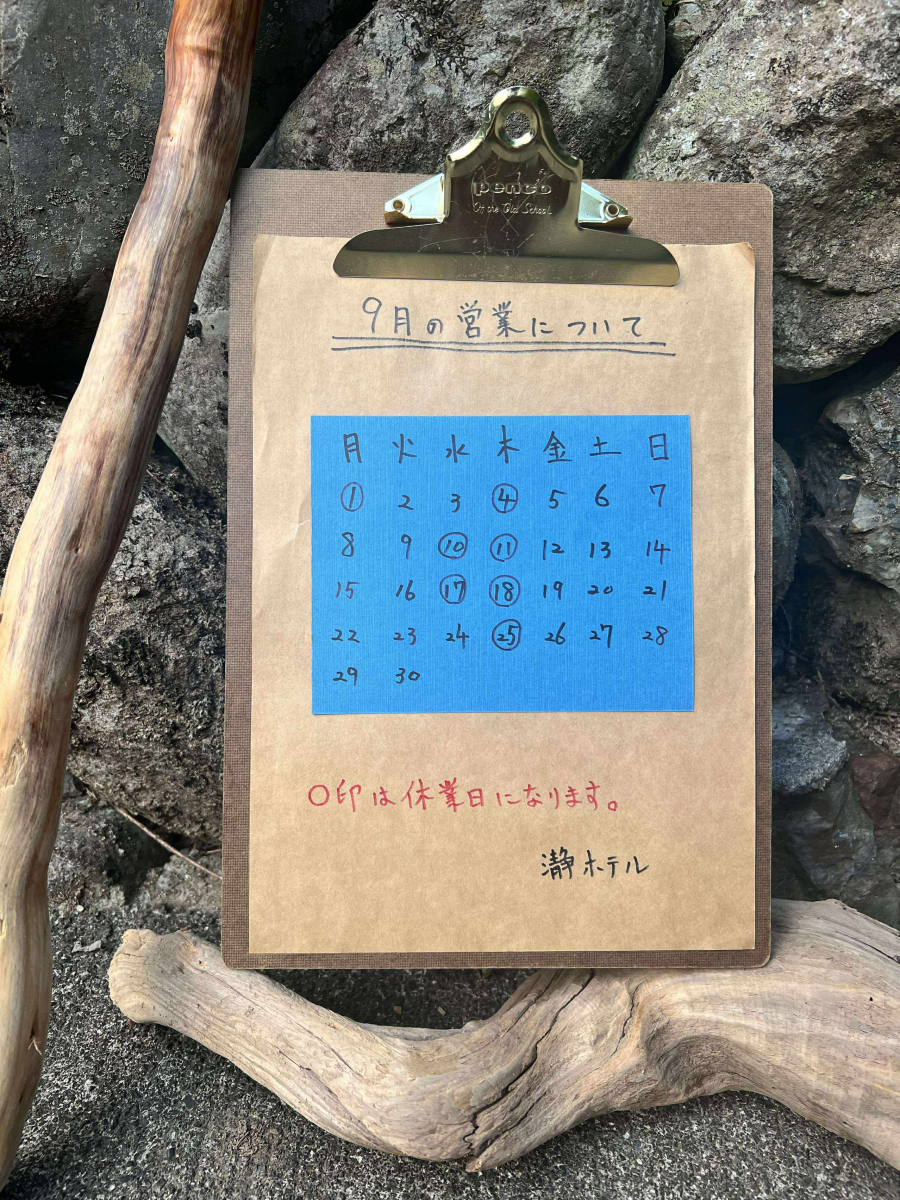 penco
Off the Old School
9月の営業について
月 火 水 木 金 土 日
① 2 3 ④ 5 6 7
8 9 ⑩ ⑪ 12 13 14
15 16 ⑰ ⑱ 19 20 21
22 23 24 ㉕ 26 27 28
29 30
〇印は休業日になります。
瀞ホテル